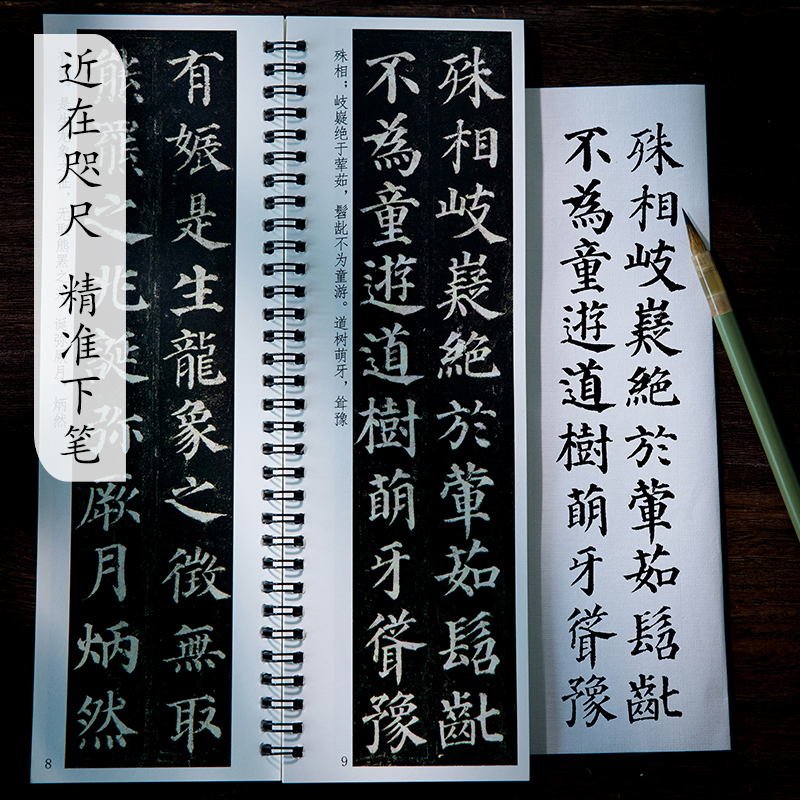 近在咫尺 精准下笔
有娠是生龍象之徵無取
熊羆之兆誕弥厥月炳然
8
殊相；岐嶷绝于荤茹，髫龀不为童游。道树萌牙，耸豫
殊相岐嶷絶於葷茹髫齔
不為童遊道樹萌牙聳豫
9
殊相岐嶷絶於葷茹髫齔
不為童遊道樹萌牙聳豫